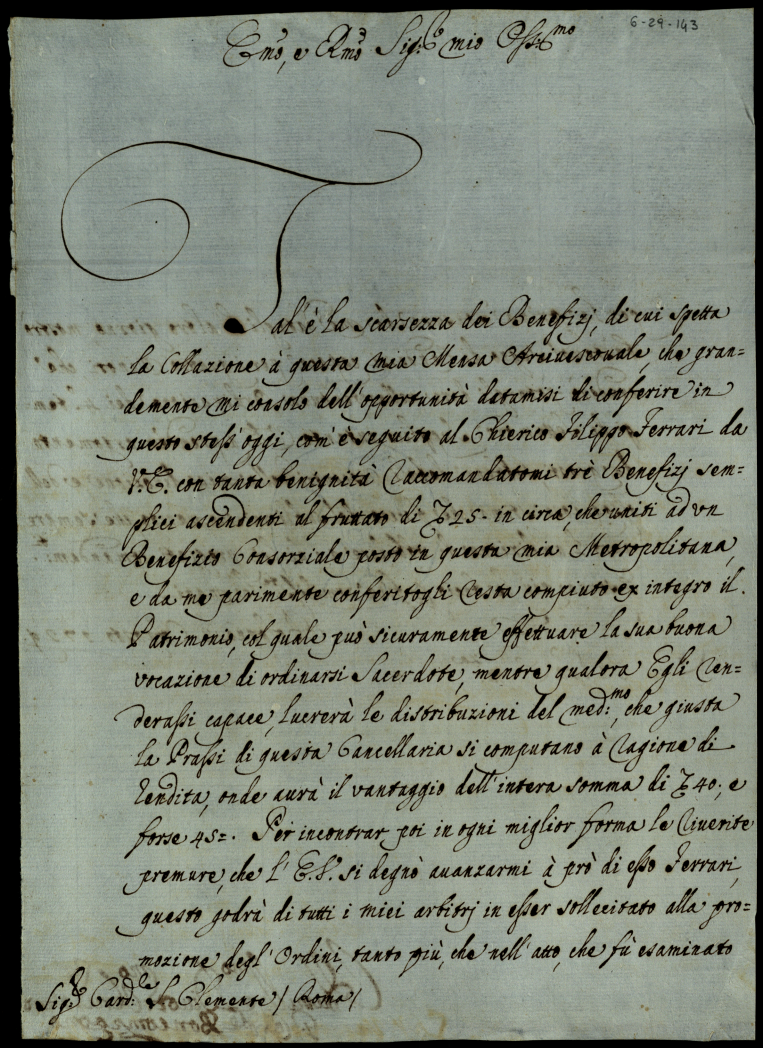 6-29-143
Emo, e Rmo Sig.r mio Oss.mo
Tal'è la scarsezza dei Benefizj, di cui spetta
la Collazione à questa mia Mensa Arcivescovale, che gran=
demente mi consolo dell'opportunità datamisi di conferire in
questo stess'oggi, com'è seguito al Chierico Filippo Ferrari da
V.E. con tanta benignità raccomandatomi trè Benefizj sem=
plici ascendenti al fruttato di 25- in circa, che uniti ad vn
Benefizio Consorziale posto in questa mia Metropolitana,
e da me parimente conferitogli resta compiuto ex integro il
Patrimonio, col quale può sicuramente effettuare la sua buona
vocazione di ordinarsi Sacerdote, mentre qualora Egli ren=
derassi capace, lucrerà le distribuzioni del med:mo, che giusta
la Prassi di questa Cancellaria si computano à ragione di
rendita, onde aurà il vantaggio dell'intera somma di 40:, e
forse 45=. Per incontrar poi in ogni miglior forma le riverite
premure, che l'E.V. si degnò auanzarmi à prò di esso Ferrari,
questo godrà di tutti i miei arbitrj in esser sollecitato alla pro=
mozione degl'Ordini, tanto più, che nell'atto, che fù esaminato
Sig.r Card:le S. Clemente / Roma /